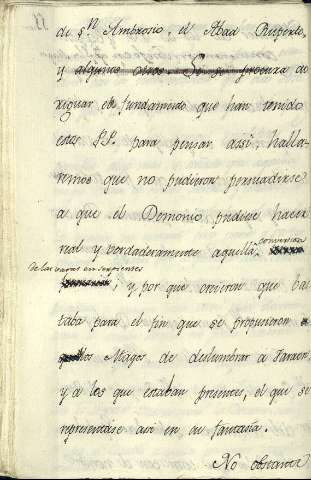 de S.n Ambrosio, el Abad Ruperto,
y algunos otros. Si se procura ave
riguar el fundamento que han tenido
estos PP. para pensar assi, halla-
remos que no pudieron persuadirse
a que el Demonio, pudiese hacer
real y verdaderamente aquella conversion
de las varas en serpientes
, y por que creieron que bas
taba para el fin que se propusieron
los Magos de deslumbrar a Faraon,
y a los que estaban presentes, el que se
representase asi en su fantasia.
No obstante